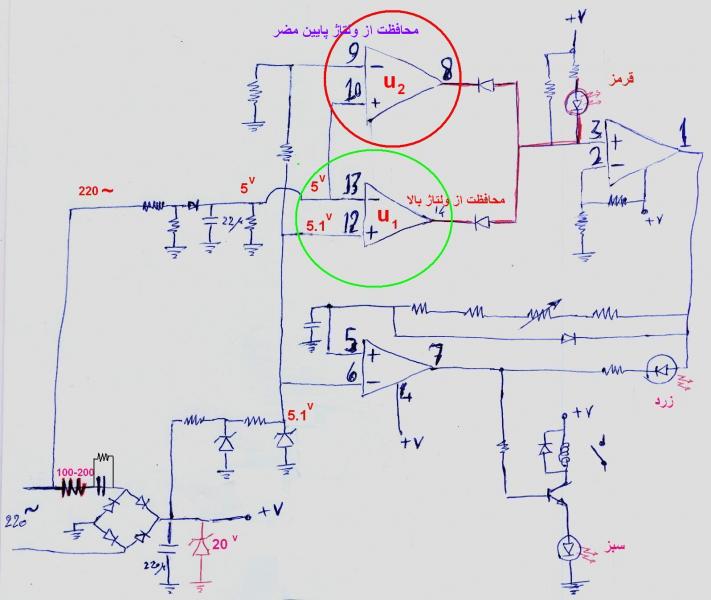 محافظت از ولتاژ پایین مضر
+V
9
8
u₂
10
+
قرمز
3
+
1
2
220 ~
5V
5V
13
محافظت از ولتاژ بالا
u₁
14
5.1V
12
+
22µ
+V
5
+
7
6
4
+V
زرد
5.1V
+V
100-200
220~
+V
20 V
220µ
سبز